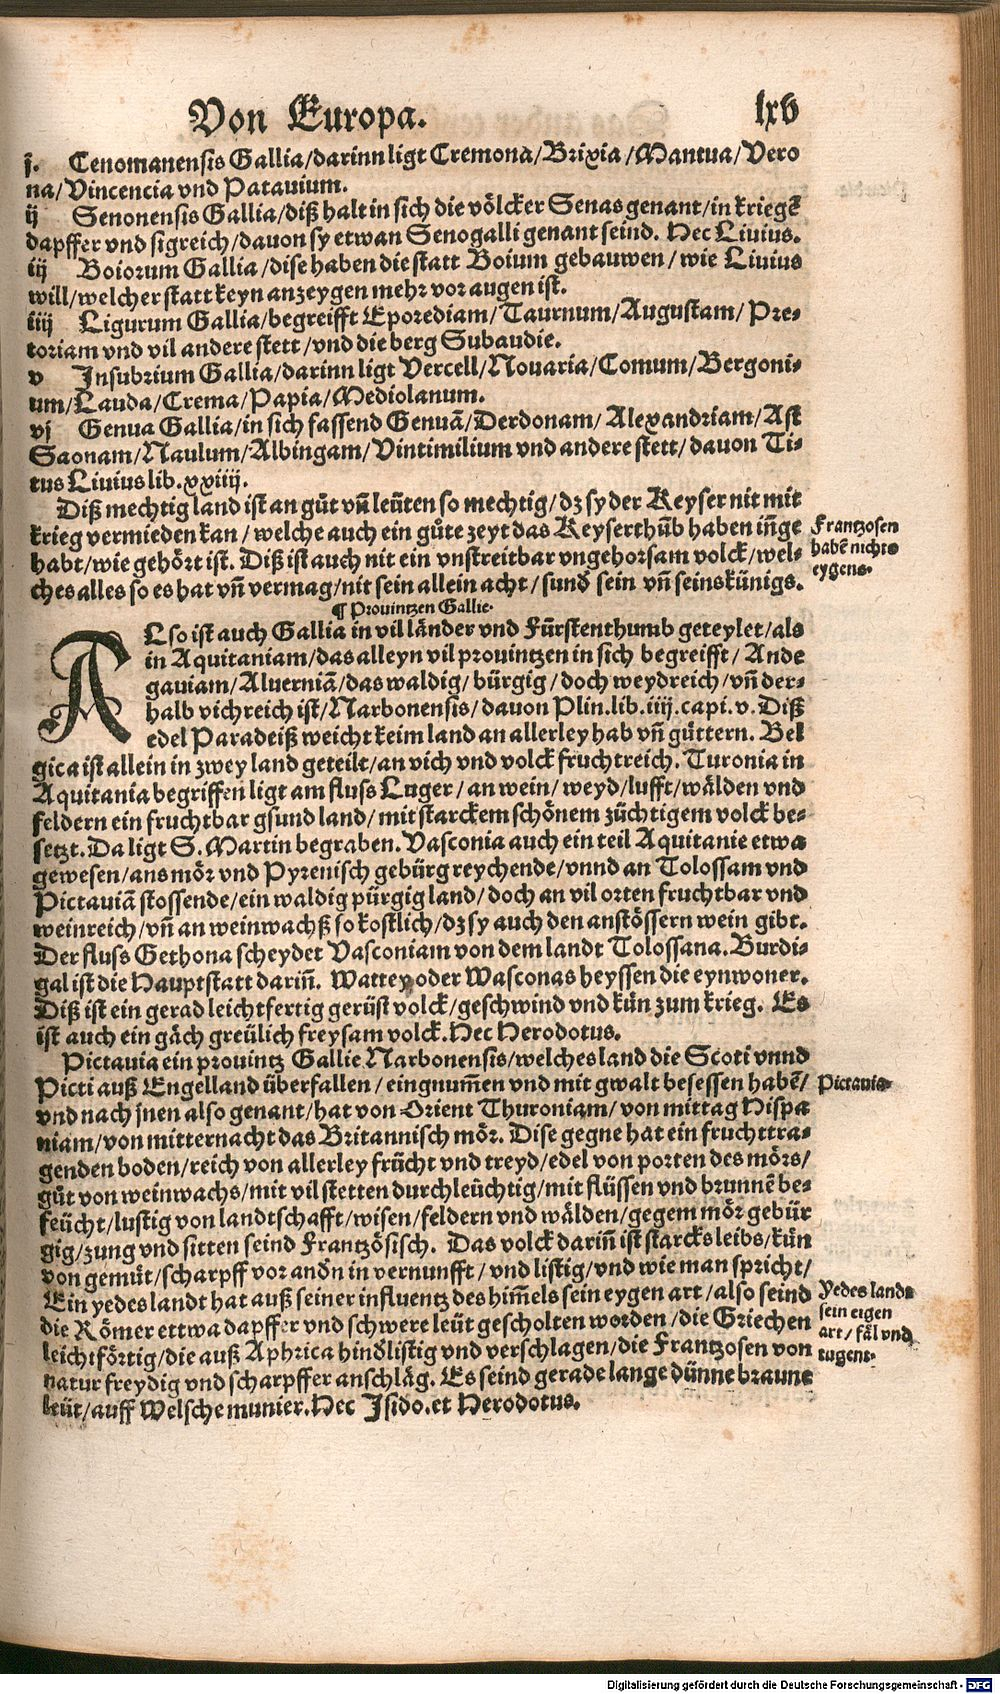 Von Europa. lxv
j. Cenomanensis Gallia/darinn ligt Cremona/Brixia/Mantua/Vero
na/Vincencia vnd Patauium.
ij Senonensis Gallia/diß halt in sich die völcker Senas genant/in kriegē
dapffer vnd sigreich/dauon sy etwan Senogalli genant seind. Hec Liuius.
iij Boiorum Gallia/dise haben die statt Boium gebauwen/wie Liuius
will/welcher statt keyn anzeygen mehr vor augen ist.
iiij Ligurum Gallia/begreifft Eporediam/Taurnum/Augustam/Pre-
toriam vnd vil andere stett/vnd die berg Subaudie.
v Insubrium Gallia/darinn ligt Vercell/Nouaria/Comum/Bergoni-
um/Lauda/Crema/Papia/Mediolanum.
vj Genua Gallia/in sich fassend Genuā/Derdonam/Alexandriam/Ast
Saonam/Naulum/Albingam/Vintimilium vnd andere stett/dauon Ti-
tus Liuius lib.xxiiij.
Diß mechtig land ist an gůt vñ leüten so mechtig/dz sy der Keyser nit mit
krieg vermieden kan/welche auch ein gůte zeyt das Keyserthůb haben iñge
habt/wie gehört ist. Diß ist auch nit ein vnstreitbar vngehorsam volck/wel-
ches alles so es hat vñ vermag/nit sein allein acht/sund sein vñ seins künigs.
Frantzosen
habē nichts
eygens.
¶ Prouintzen Gallie.
ALso ist auch Gallia in vil länder vnd Fürstenthumb geteylet/als
in Aquitaniam/das alleyn vil prouintzen in sich begreifft/Ande
gauiam/Aluerniā/das waldig/bürgig/doch weydreich/vñ der-
halb vichreich ist/Narbonensis/dauon Plin.lib.iiij.capi.v. Diß
edel Paradeiß weicht keim land an allerley hab vñ güttern. Bel
gica ist allein in zwey land geteilt/an vich vnd volck fruchtreich. Turonia in
Aquitania begriffen ligt am fluss Luger/an wein/weyd/lufft/wälden vnd
feldern ein fruchtbar gsund land/mit starckem schönem züchtigem volck be-
setzt. Da ligt S. Martin begraben. Vasconia auch ein teil Aquitanie etwa
gewesen/ans mör vnd Pyrenisch gebürg reychende/vnnd an Tolossam vnd
Pictauiā stossende/ein waldig pürgig land/doch an vil orten fruchtbar vnd
weinreich/vñ an weinwachß so kostlich/dz sy auch den anstössern wein gibt.
Der fluss Gethona scheydet Vasconiam von dem landt Tolossana. Burdi-
gal ist die Hauptstatt dariñ. Wattey oder Wasconas heyssen die eynwoner.
Diß ist ein gerad leichtfertig gerüst volck/geschwind vnd kün zum krieg. Es
ist auch ein gäch greülich freysam volck. Hec Herodotus.
Pictauia ein prouintz Gallie Narbonensis/welches land die Scoti vnnd
Picti auß Engelland überfallen/eingnum̃en vnd mit gwalt besessen habē/
vnd nach jnen also genant/hat von Orient Thuroniam/von mittag Hispa
niam/von mitternacht das Britannisch mör. Dise gegne hat ein fruchttra-
genden boden/reich von allerley frücht vnd treyd/edel von porten des mörs/
gůt von weinwachs/mit vil stetten durchleüchtig/mit flüssen vnd brunnē be-
feücht/lustig von landtschafft/wisen/feldern vnd wälden/gegem mör gebür
gig/zung vnd sitten seind Frantzösisch. Das volck dariñ ist starcks leibs/kün
von gemüt/scharpff vor andn in vernunfft/vnd listig/vnd wie man spricht/
Ein yedes landt hat auß seiner influentz des him̃els sein eygen art/also seind
die Römer ettwa dapffer vnd schwere leüt gescholten worden/die Griechen
leichtförtig/die auß Aphrica hindlistig vnd verschlagen/die Frantzosen von
natur freydig vnd scharpffer anschläg. Es seind gerade lange dünne braune
leüt/auff Welsche munier. Hec Isido.et Herodotus.
Pictauia.
Yedes lands
sein eigen
art/fäl vnd
tugent.
Digitalisierung gefördert durch die Deutsche Forschungsgemeinschaft - DFG